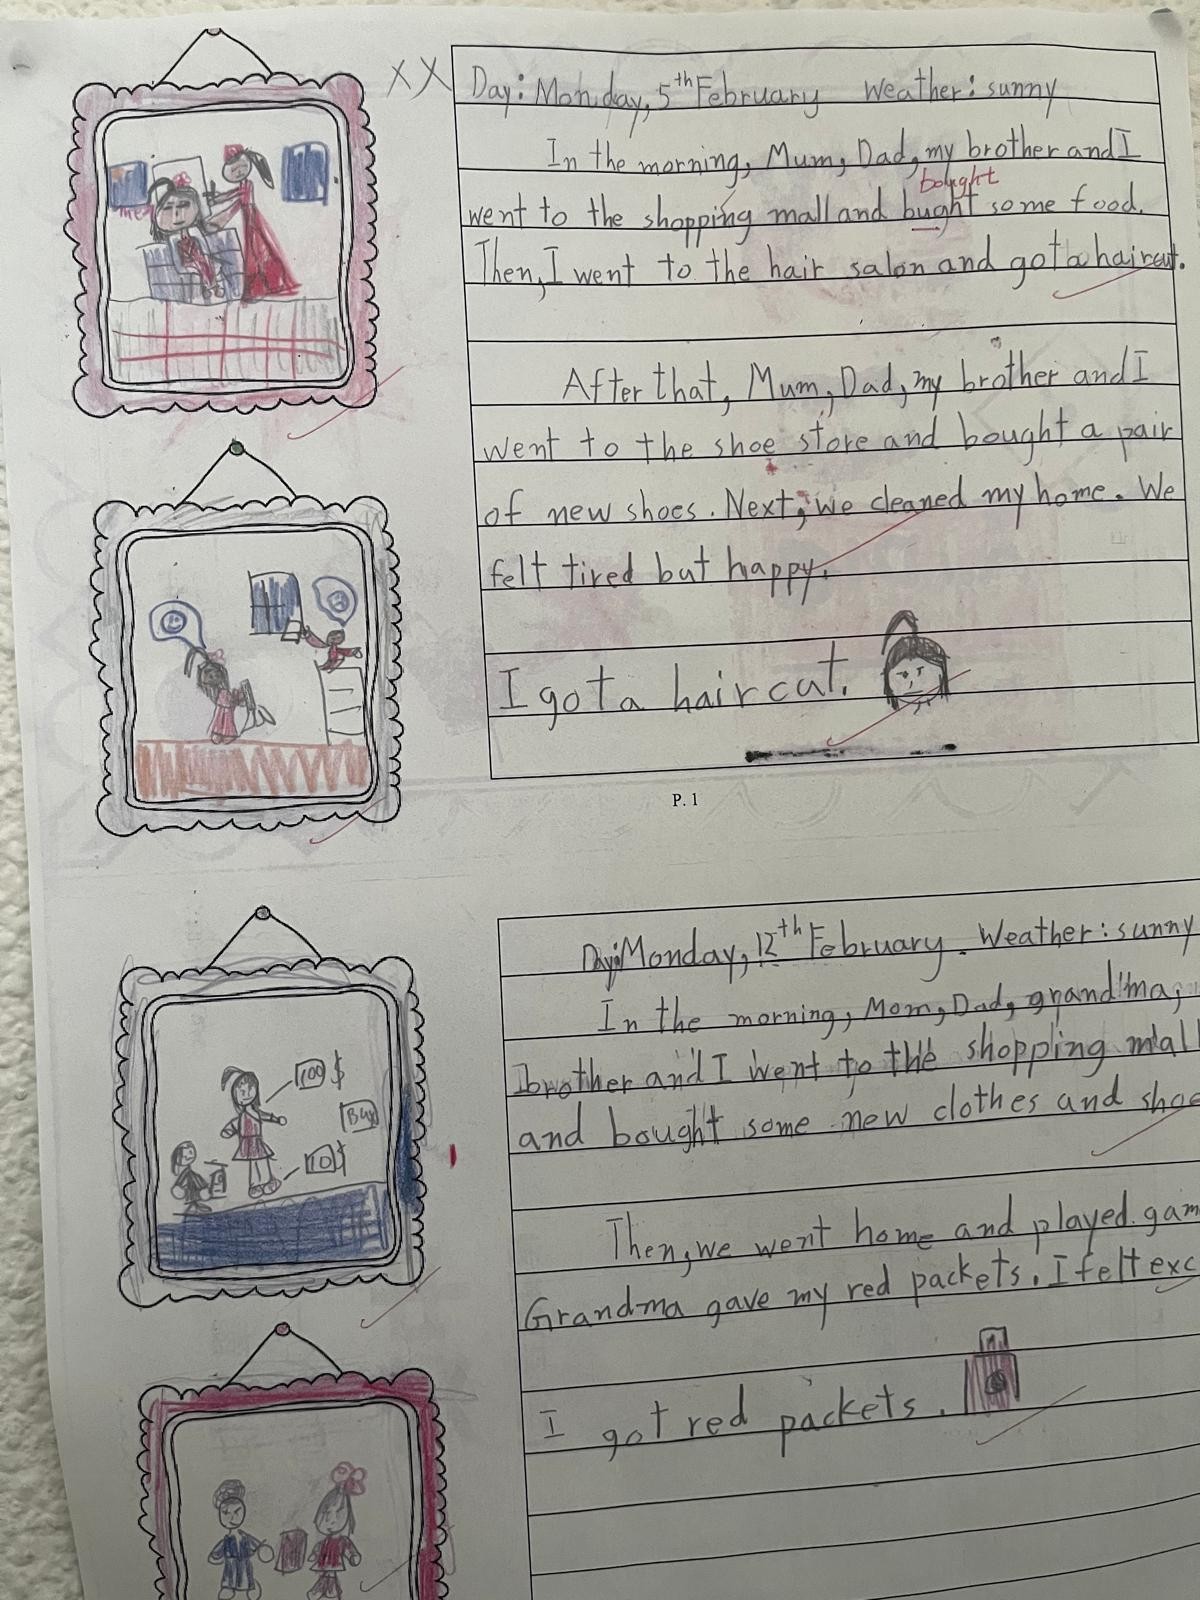 XX
Day: Monday, 5th February Weather: sunny
In the morning, Mum, Dad, my brother and I
bought
went to the shopping mall and bught some food.
Then, I went to the hair salon and got a haircut.
me
After that, Mum, Dad, my brother and I
went to the shoe store and bought a pair
of new shoes. Next, we cleaned my home. We
felt tired but happy.
I got a haircut.
P. 1
Day: Monday, 12th February. Weather: sunny
In the morning, Mom, Dad, grandma,
brother and I went to the shopping mall
and bought some new clothes and shoe
100 $
Buy
10 $
Then, we went home and played gam
Grandma gave my red packets. I felt exc
I got red packets.